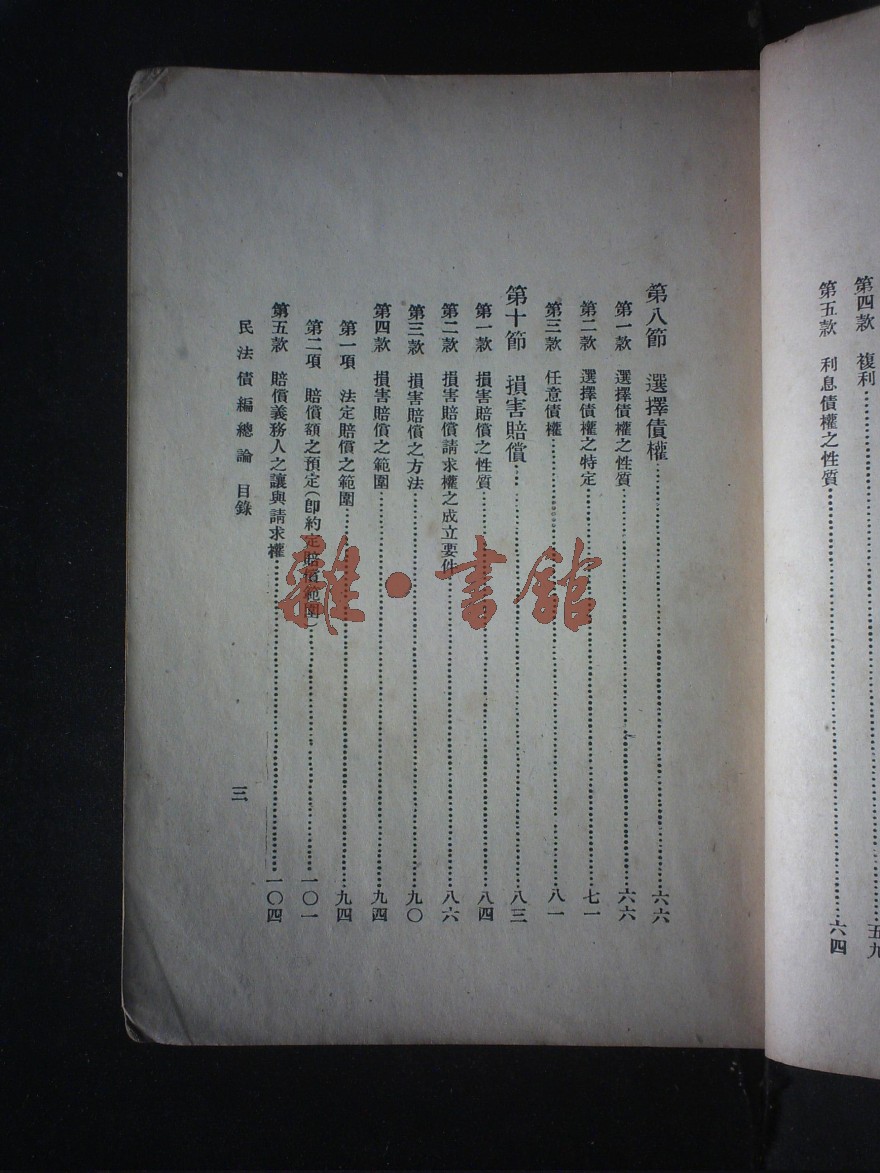 第四款　複利……五九
第五款　利息債權之性質……六四
第八節　選擇債權……六六
第一款　選擇債權之性質……六六
第二款　選擇債權之特定……七一
第三款　任意債權……八一
第十節　損害賠償……八三
第一款　損害賠償之性質……八四
第二款　損害賠償請求權之成立要件……八六
第三款　損害賠償之方法……九〇
第四款　損害賠償之範圍……九四
第一項　法定賠償之範圍……九四
第二項　賠償額之預定（卽約定賠償範圍）……一〇一
第五款　賠償義務人之讓與請求權……一〇四
民法債編總論　目錄
三
雜·書館